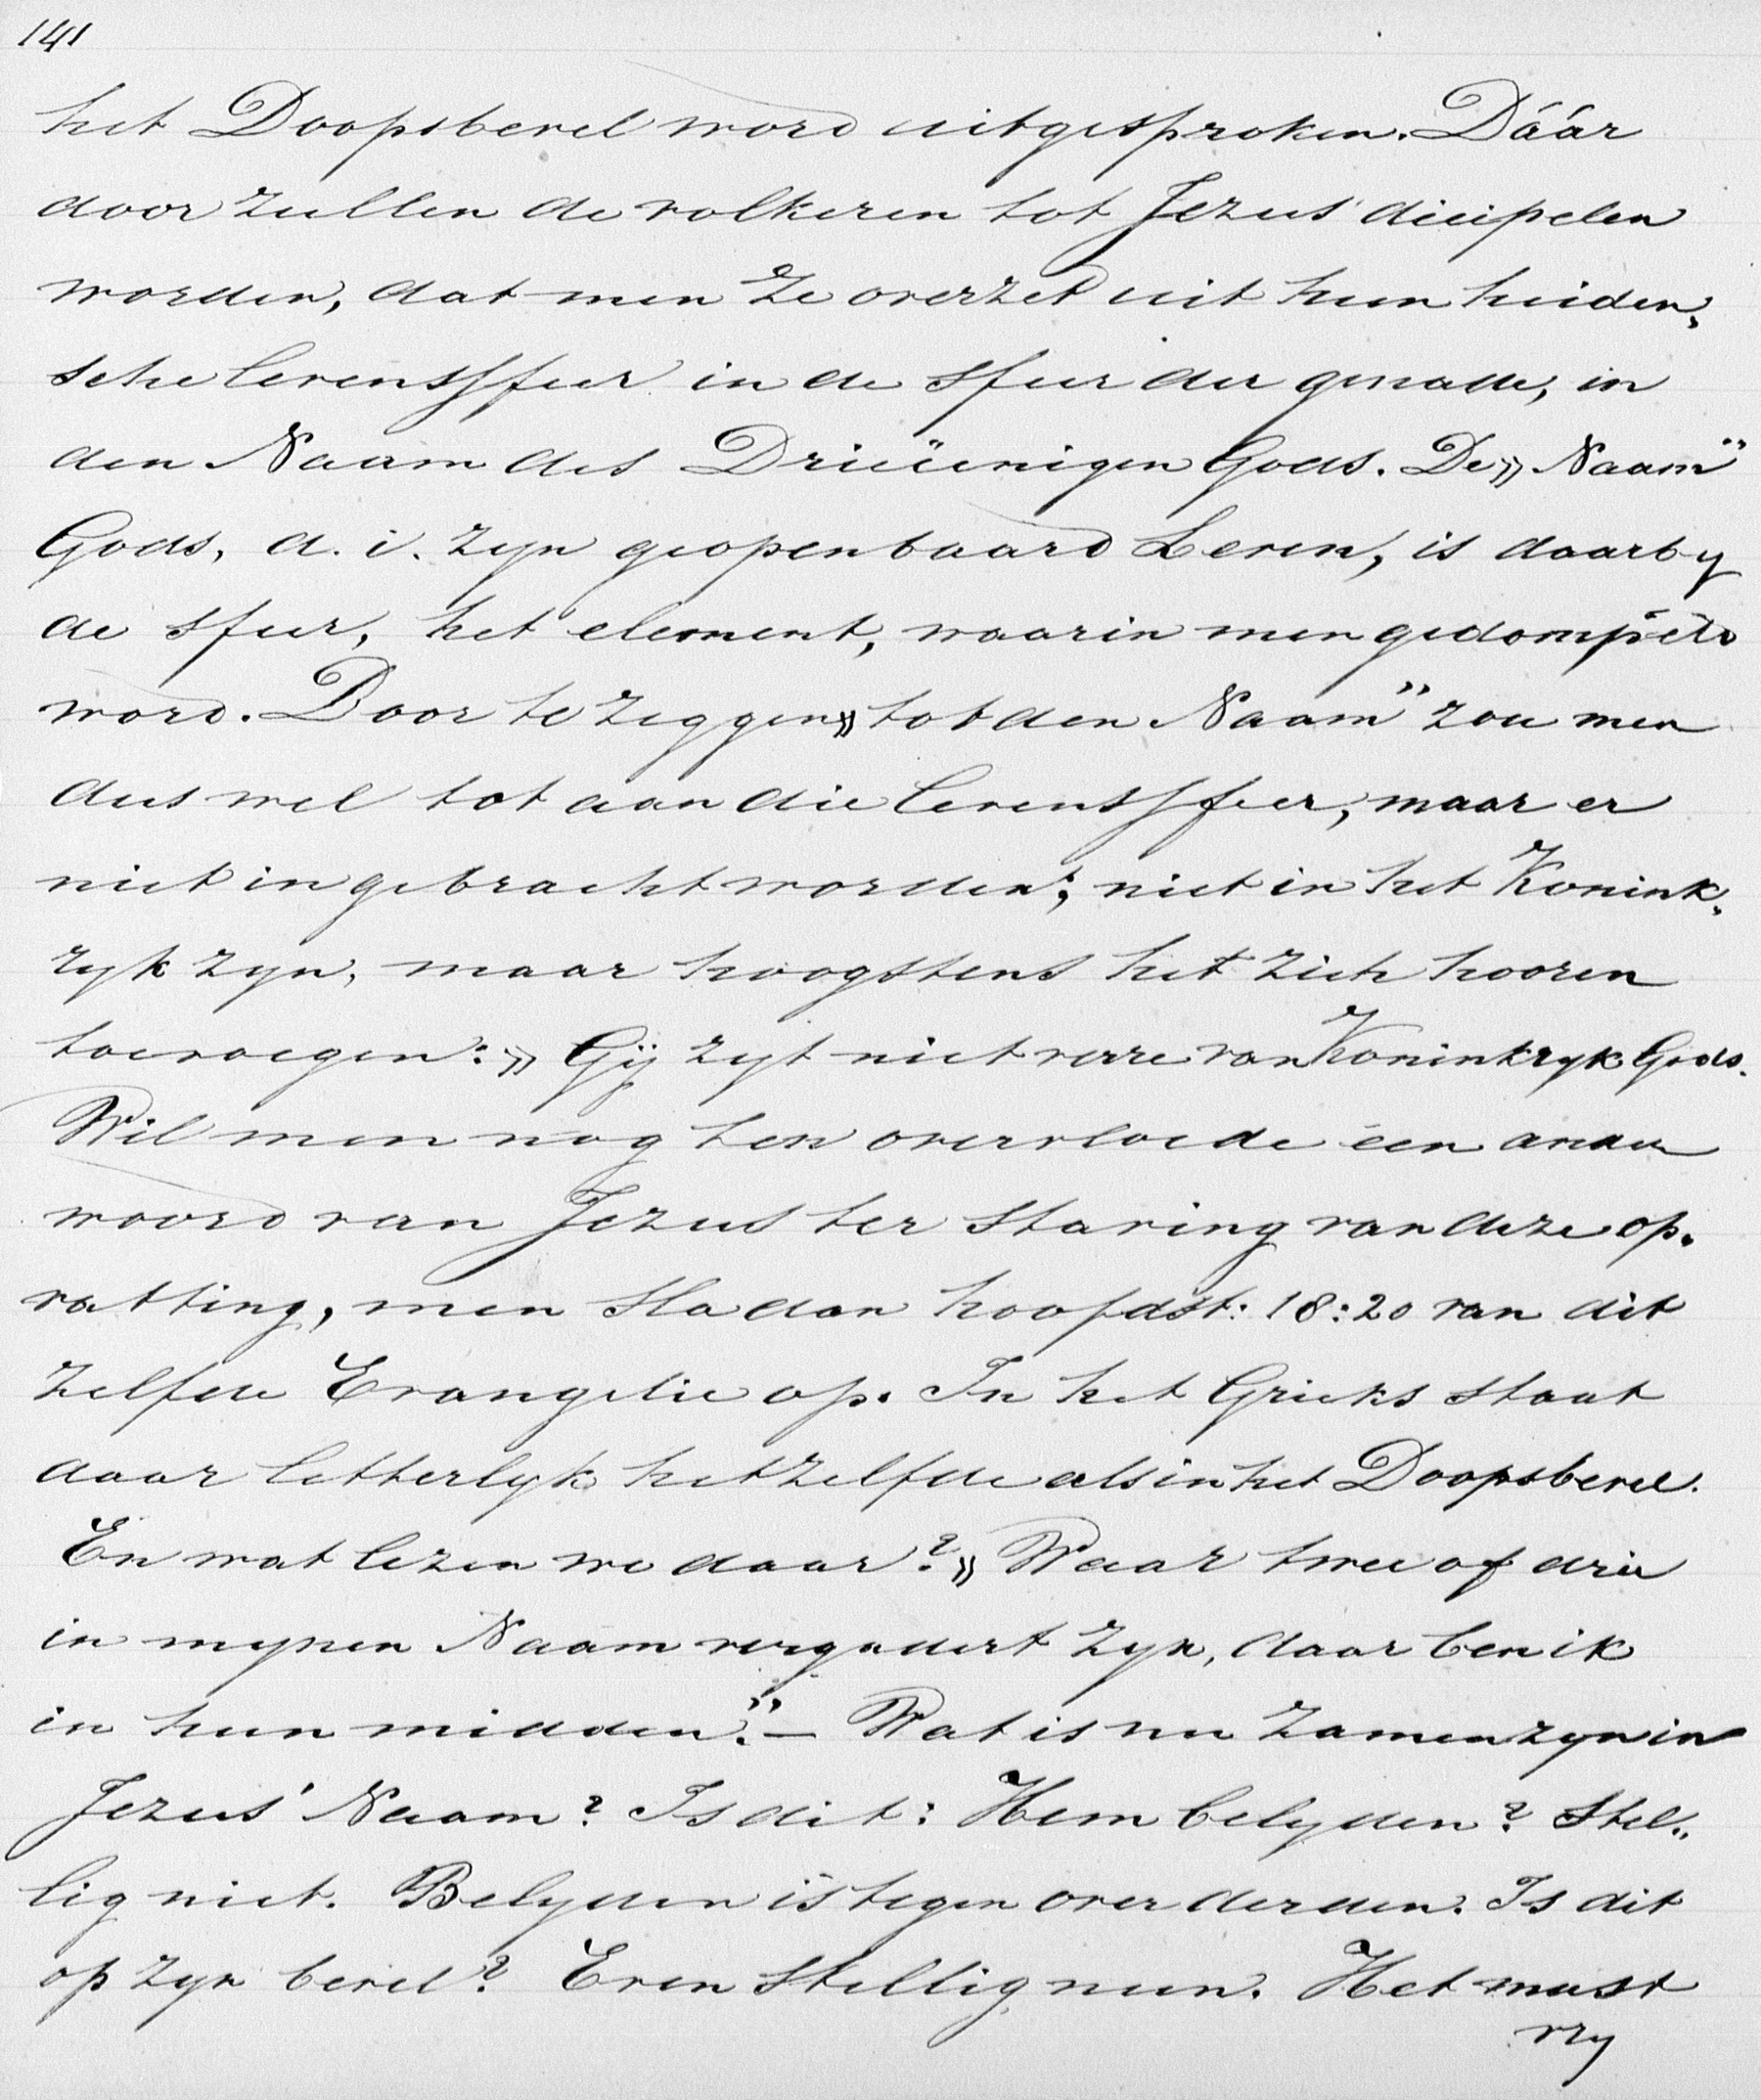 141
het Doopsbevel word uitgesproken. Dáár
door zullen de volkeren tot Jezus' dicipelen
worden, dat men ze overzet uit hun heiden„
sche levenssfeer in de sfeer der genade, in
den Naam des Drieëenigen Gods. De „Naam"
Gods, d. i. zyn geopenbaard Leven, is daarby
de sfeer, het element, waarin men gedompeld
word. Door te zeggen „tot den Naam" zou men
dus wel tot aan die levenssfeer, maar er
niet in gebracht worden; niet in het Konink„
ryk zyn, maar hoogstens het zich hooren
toevoegen: „Gij zyt niet verre van Koninkryk Gods.
Wil men nog ten overvloede een ander
woord van Jezus ter staving van deze op„
vatting, men sla dan hoofdst: 18:20 van dit
zelfde Evangelie op. In het Grieks staat
daar letterlyk hetzelfde als in het Doopsbevel.
En wat lezen we daar? „Waar twee of drie
in mynen Naam vergadert zyn, daar ben ik
in hun midden." — Wat is nu zamenzyn in
Jezus' Naam? Is dit: Hem belyden? Stel„
lig niet. Belyden is tegen over derden. Is dit
op zyn bevel? Even stellig neen. Het must
vry